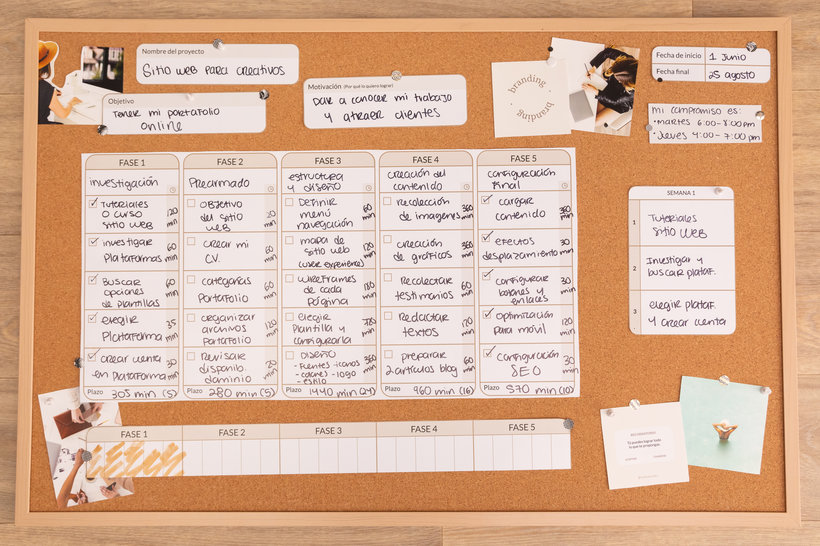 Nombre del proyecto
Sitio web para creativos
Objetivo
Tener mi portafolio
online
Motivación (Por qué lo quiero lograr)
Dar a conocer mi trabajo
y atraer clientes
branding
branding
Fecha de inicio
1 Junio
Fecha final
25 agosto
mi compromiso es:
• martes 6:00-8:00 pm
• Jueves 4:00 - 7:00 pm
FASE 1
investigación
Tutoriales
o curso
sitio web
120 min
investigar
Plataformas
60 min
Buscar
opciones
de plantillas
60 min
elegir
Plataforma
35 min
crear cuenta
en plataforma
30 min
Plazo
305 min (5)
FASE 2
Prearmado
objetivo
del sitio
web
20 min
crear mi
CV.
60 min
categorías
Portafolio
60 min
organizar
archivos
Portafolio
120 min
Revisar
disponib.
dominio
20 min
Plazo
280 min (5)
FASE 3
estructura
y diseño
Definir
menú
navegación
60 min
mapa de
sitio web
(user experience)
120 min
wireframes
de cada
página
180 min
elegir
Plantilla y
configurarla
min
Diseño
- Fuentes - iconos
- colores - logo
- estilo
360 min
Plazo
1440 min (24)
FASE 4
creación del
contenido
recolección
de imágenes
360 min
creación
de gráficos
360 min
Recolectar
testimonios
60 min
Redactar
textos
120 min
preparar
2 artículos blog
60 min
Plazo
960 min (16)
FASE 5
configuración
final
cargar
contenido
360 min
efectos
desplazamiento
30 min
configurar
botones y
enlaces
30 min
optimización
para móvil
120 min
configuración
SEO
30 min
Plazo
570 min (10)
SEMANA 1
1
Tutoriales
sitio web
2
Investigar y
buscar plataf.
3
elegir plataf.
y crear cuenta
FASE 1
FASE 2
FASE 3
FASE 4
FASE 5
Tú puedes lograr todo
lo que te propongas.